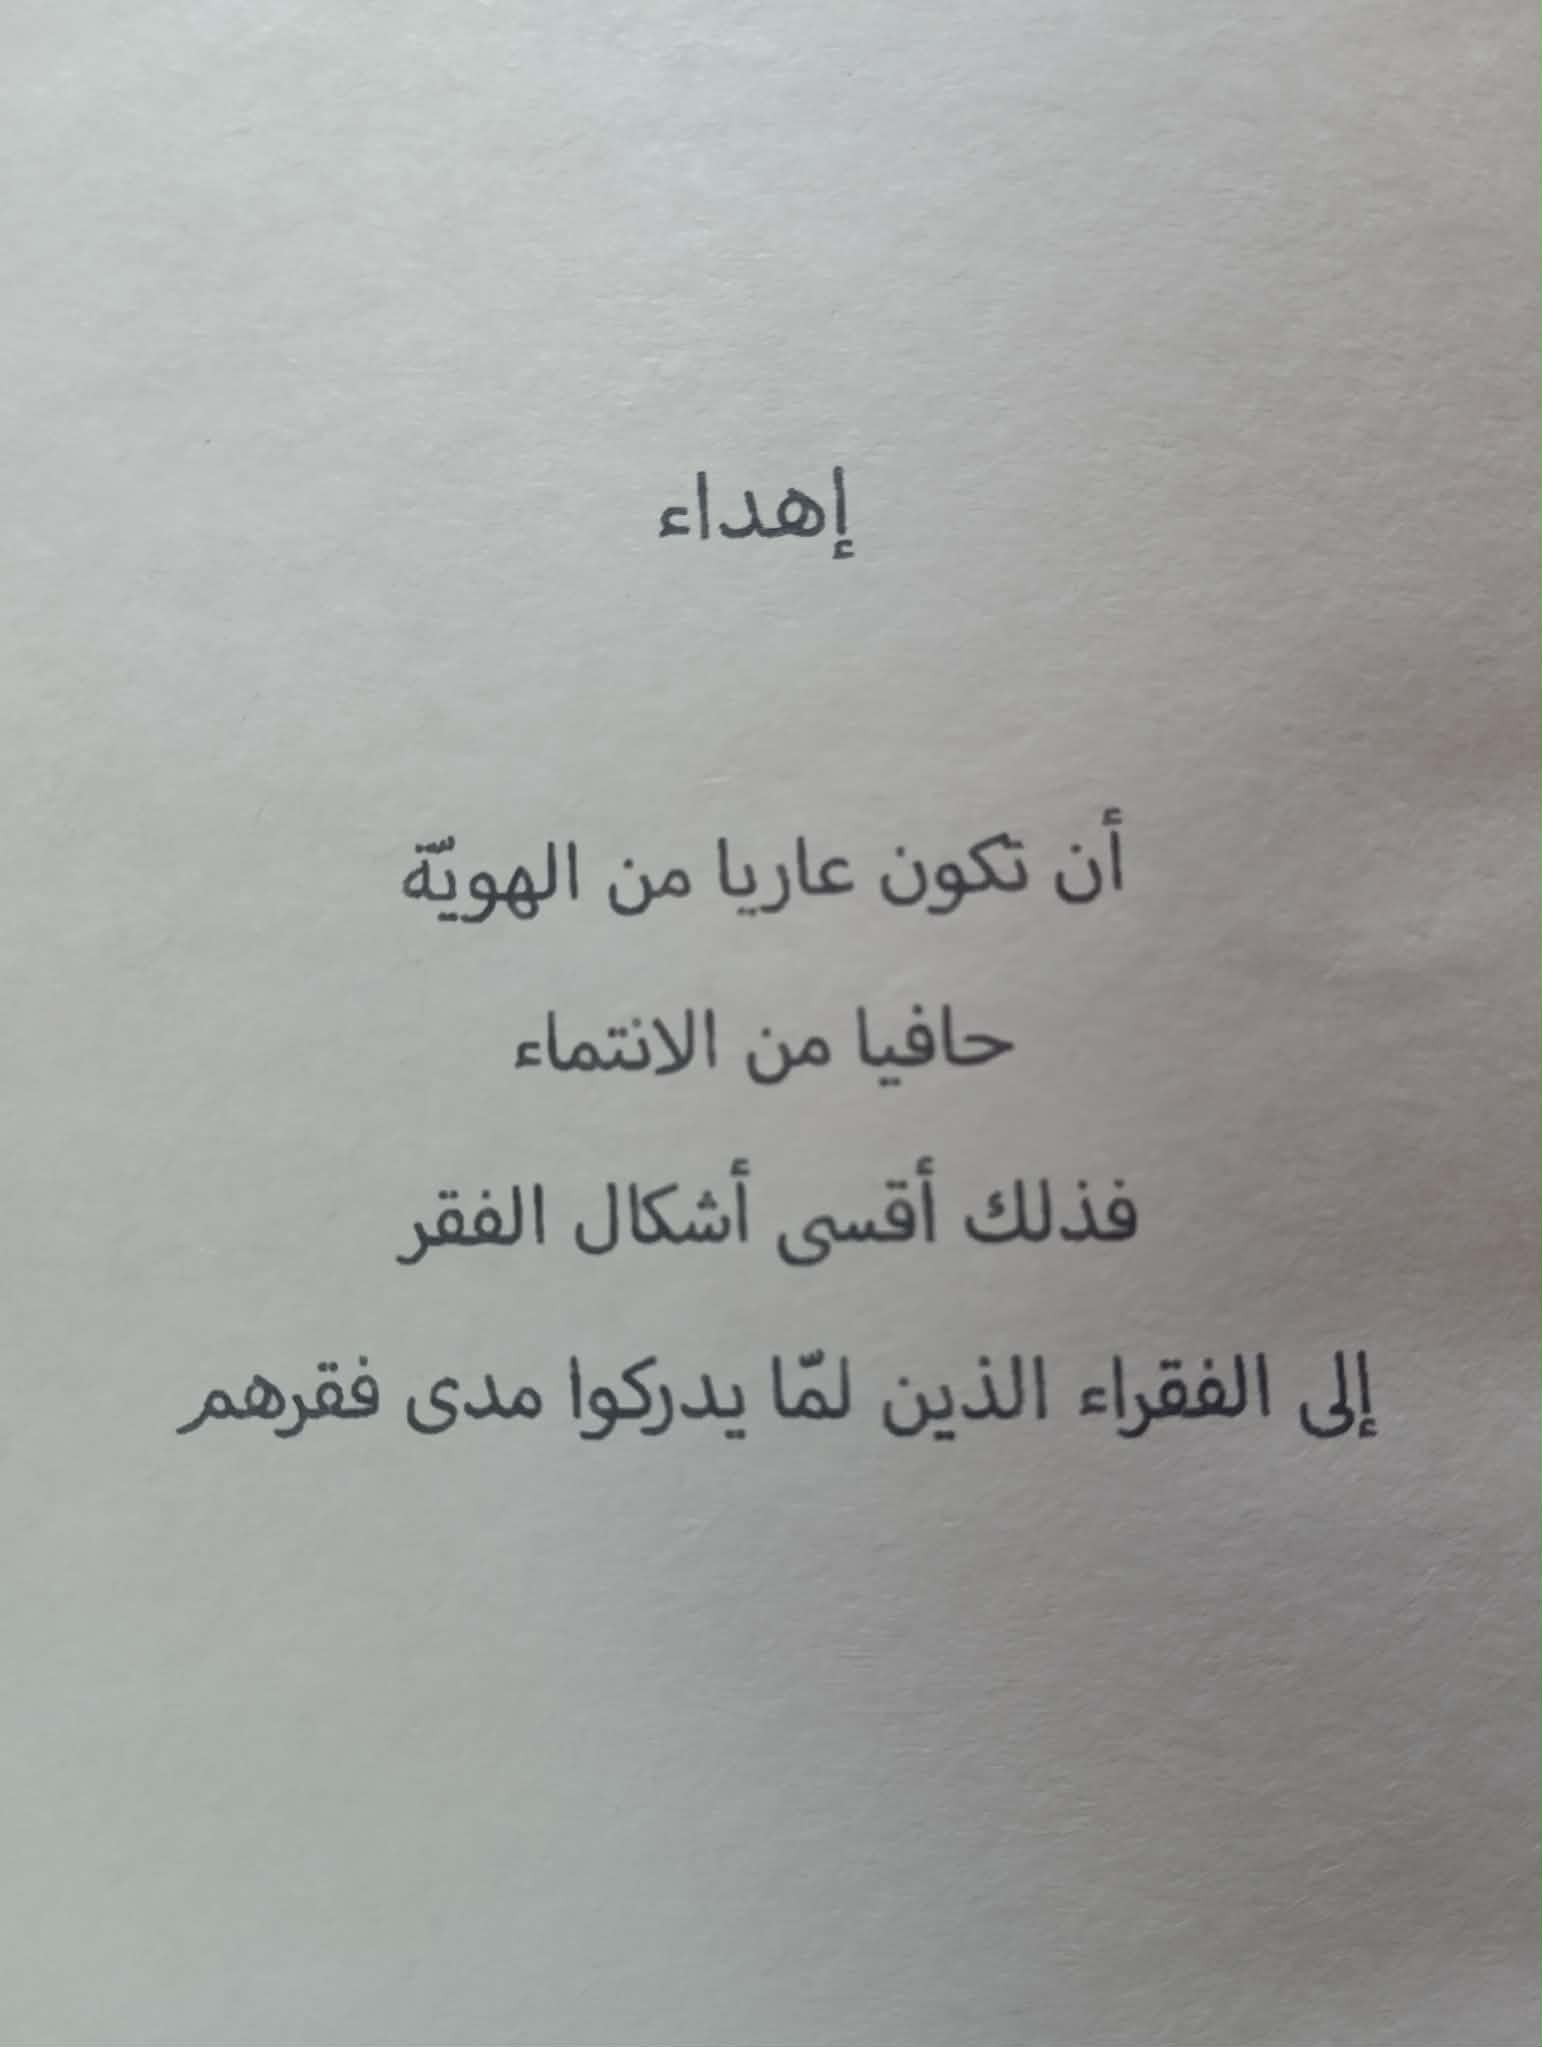 إهداء
أن تكون عاريا من الهويّة
حافيا من الانتماء
فذلك أقسى أشكال الفقر
إلى الفقراء الذين لمّا يدركوا مدى فقرهم